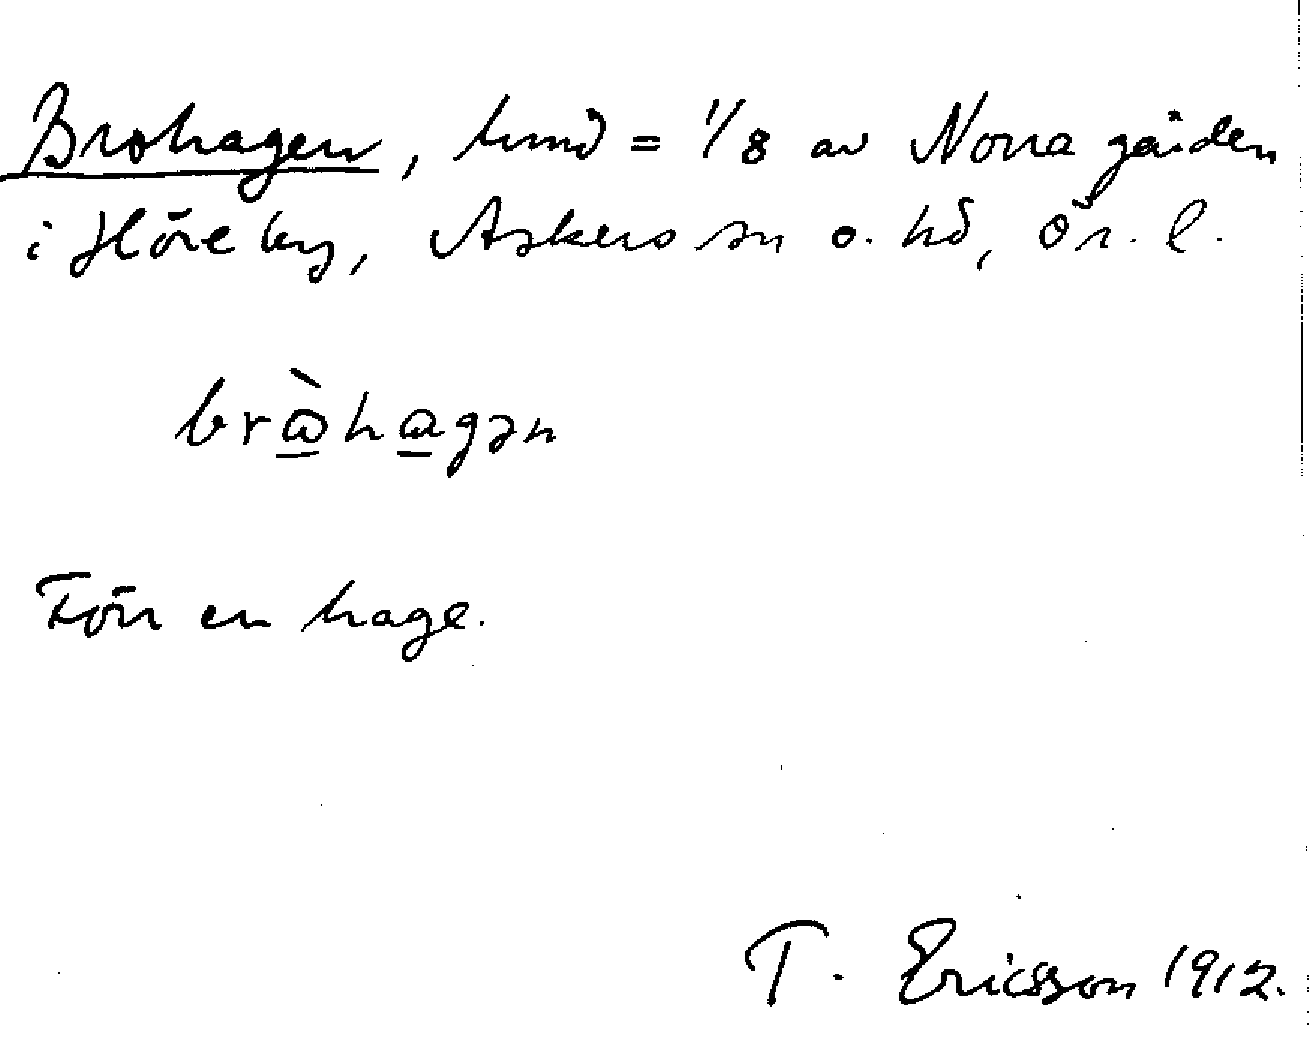 Brohagen, hmd = 1/8 av Norra gården
i Höreby, Askers sn o. hd, Ör. l.
brὼ̲ha̲gən
Förr en hage.
T. Ericsson 1912.